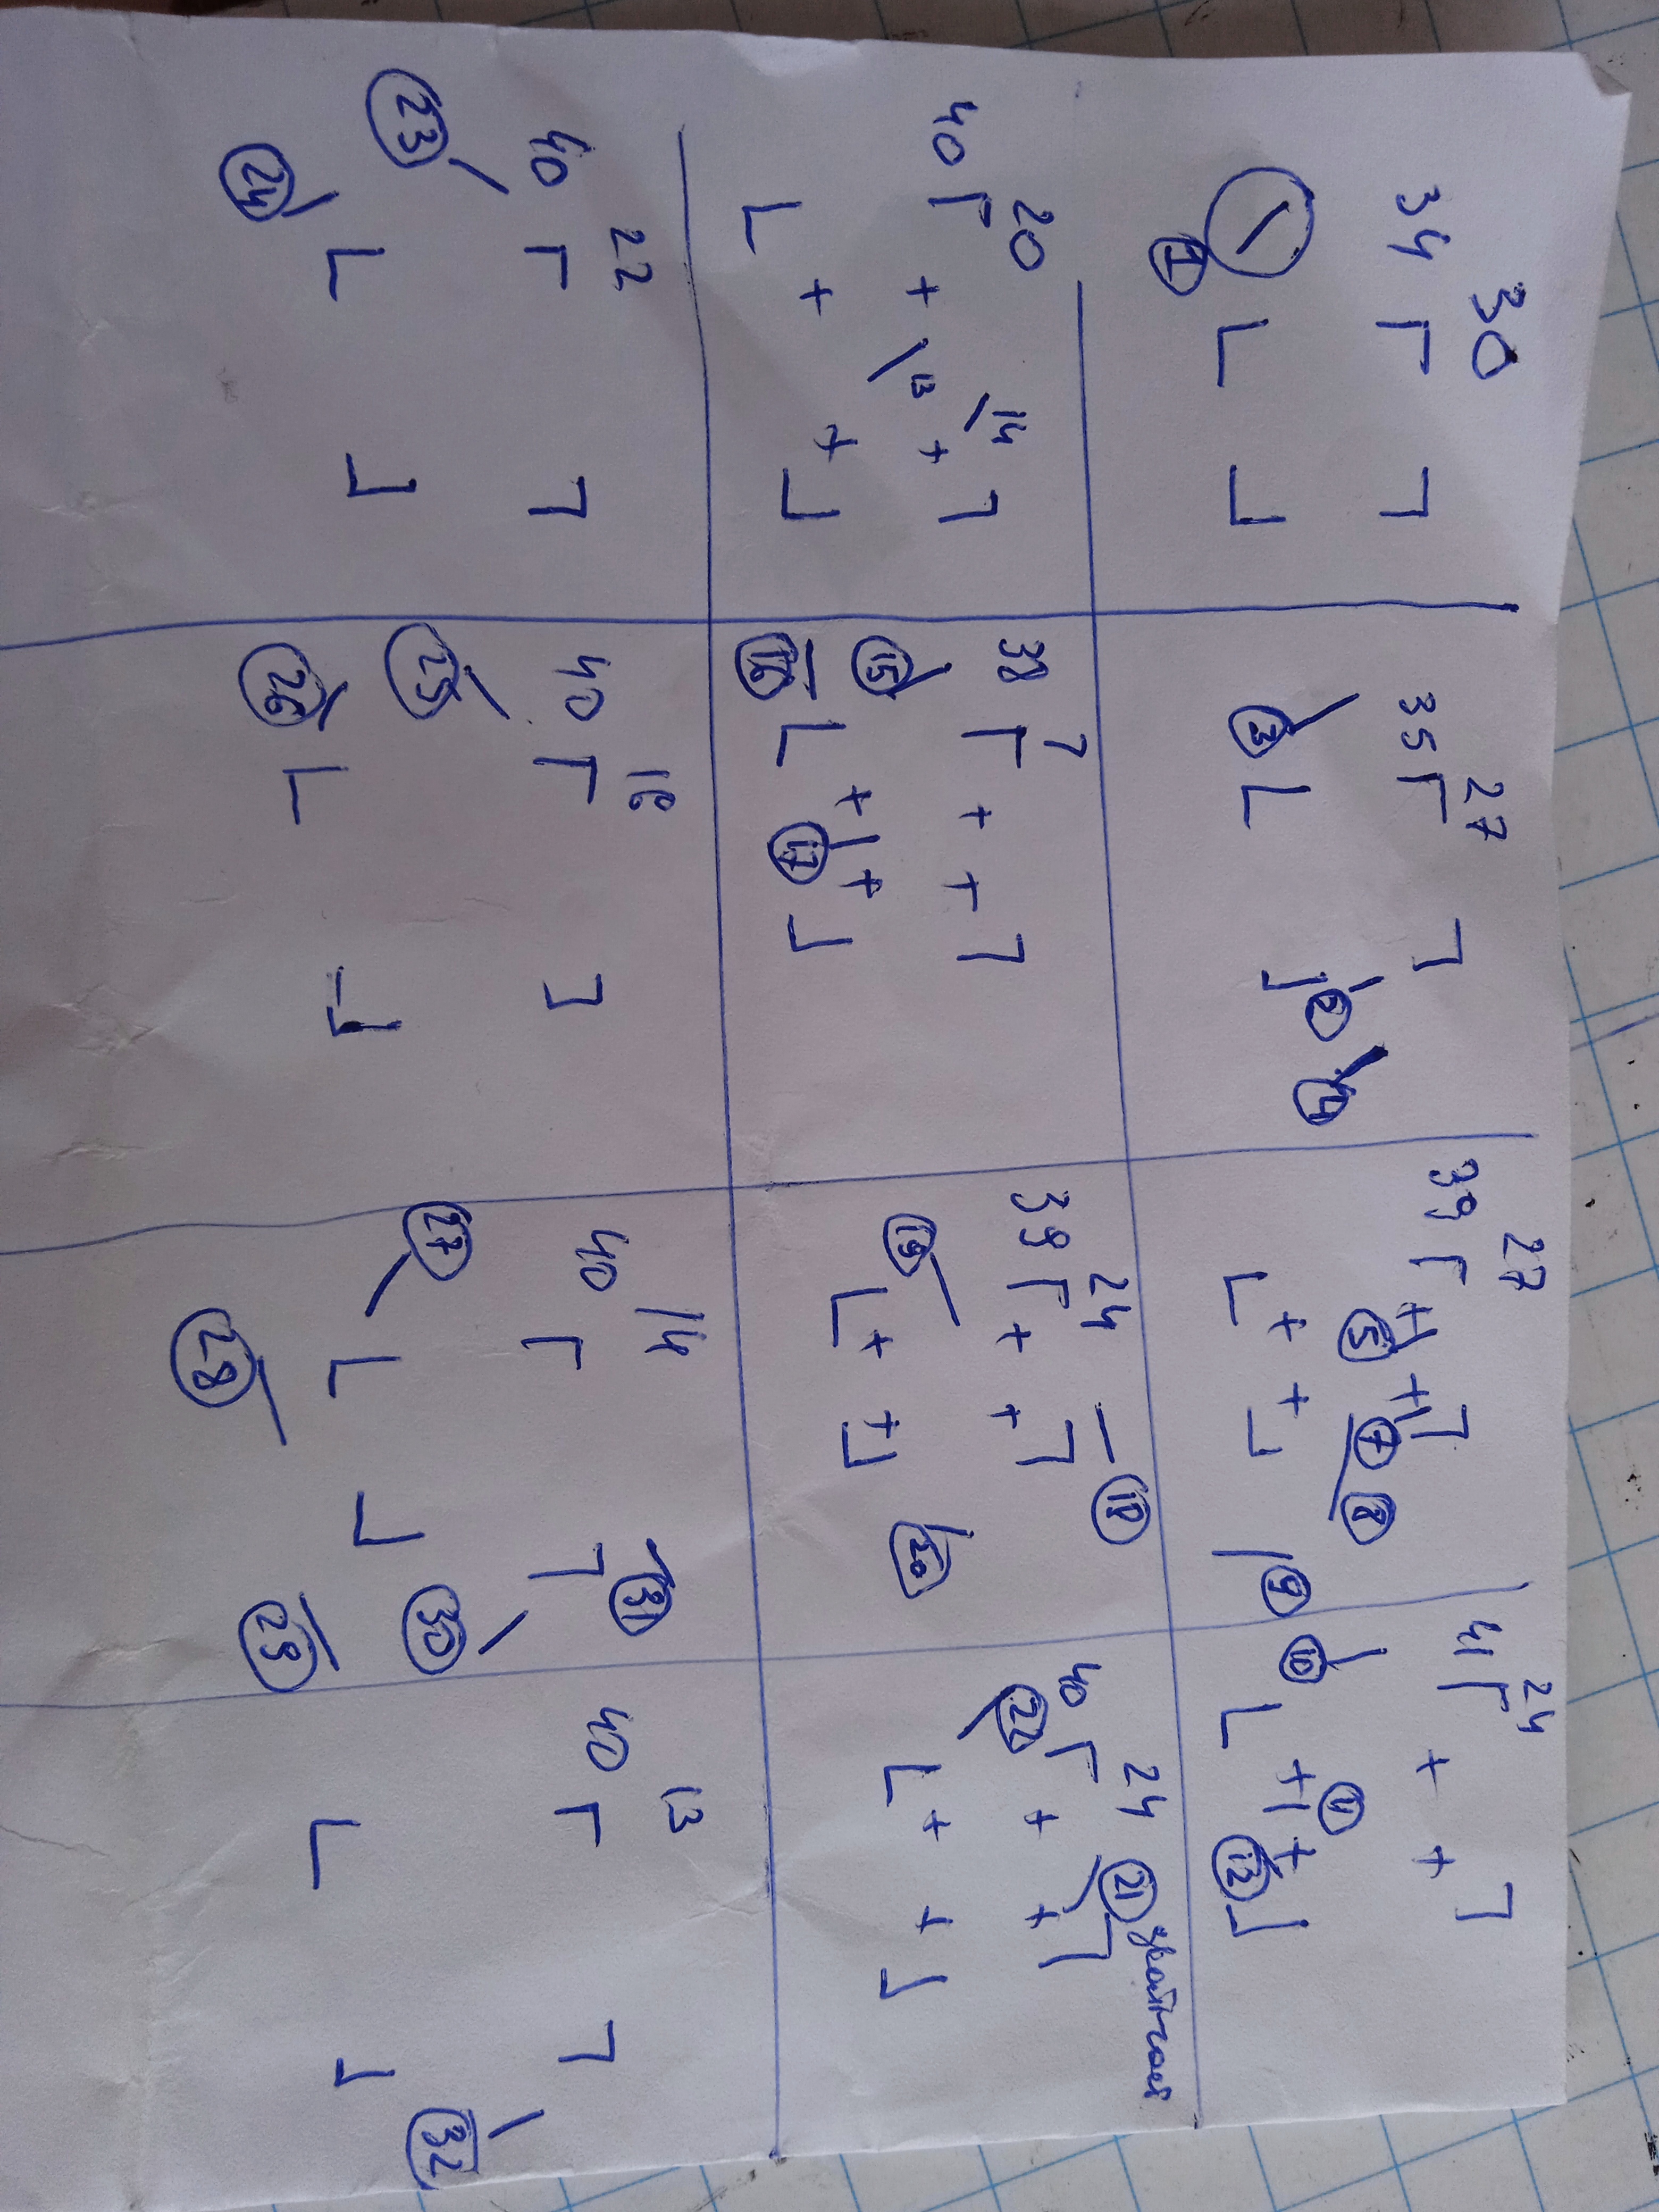 30
34
1
27
35
2
4
3
27
39
5
7
8
9
24
41
10
11
12
20
40
14
13
7
38
15
16
17
24
18
39
19
20
24
21
40
22
22
40
23
24
18
40
25
26
14
31
40
27
30
29
28
13
40
32